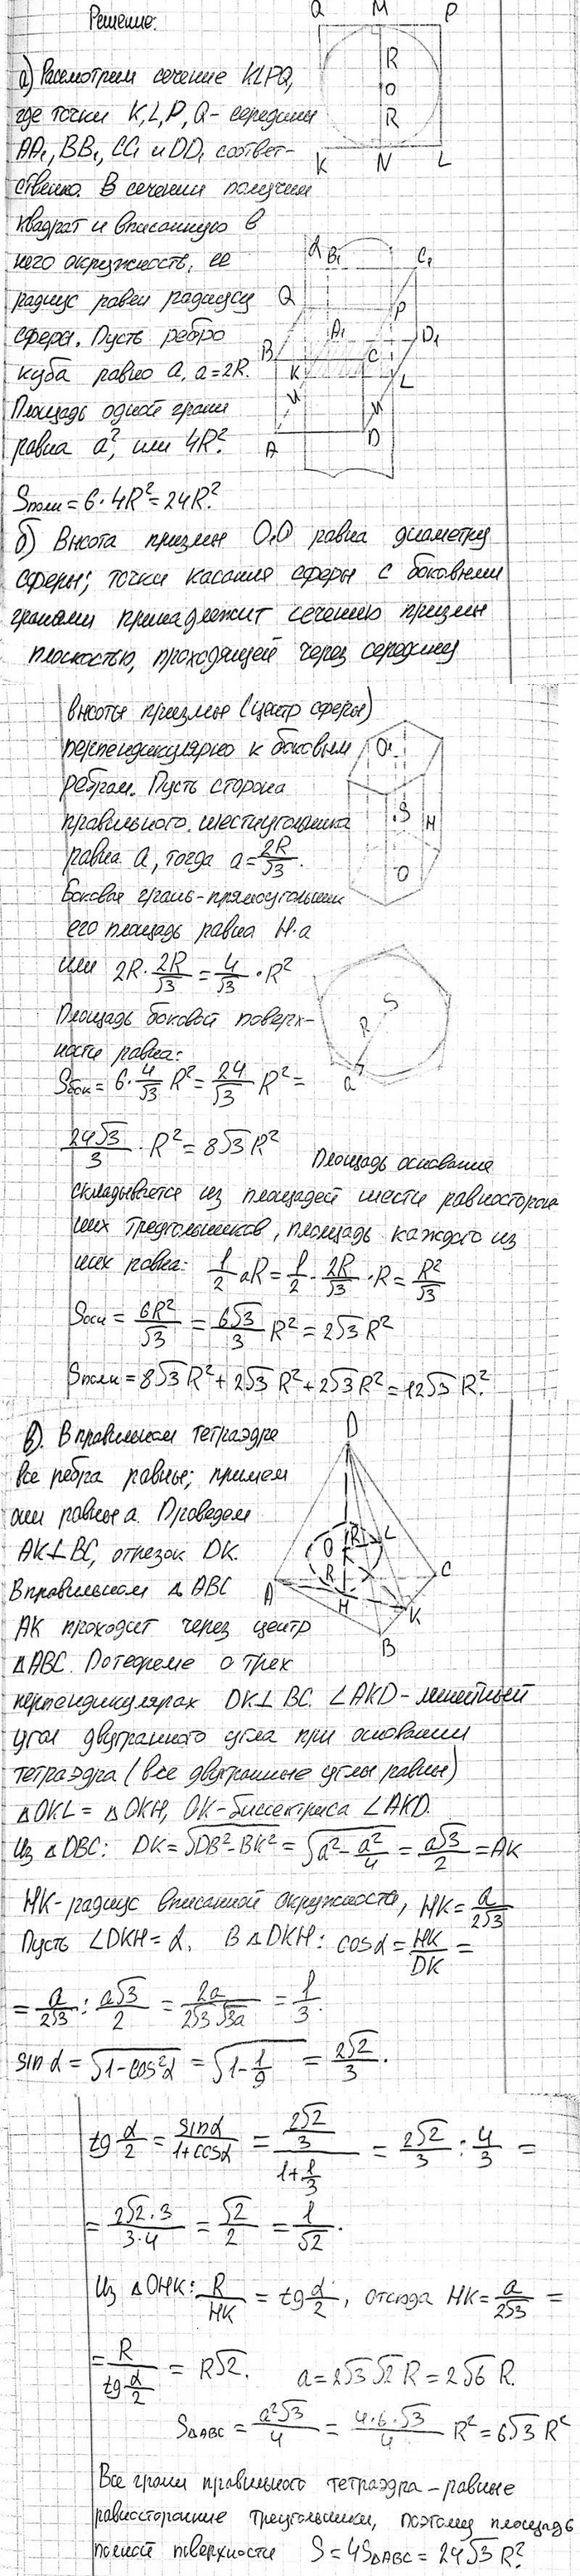 Решение:
Q M P
R
O
R
K N L
а) Рассмотрим сечение KLPQ,
где точки K, L, P, Q - середины
AA₁, BB₁, CC₁ и DD₁ соответ-
ственно. В сечении получим
квадрат и вписанную в
него окружность, ее
радиус равен радиусу
сферы. Пусть ребро
куба равно a, a=2R.
Площадь одной грани
равна a², или 4R².
B₁ C₁
Q P
A₁ D₁
B C
K L
A D
Sполн = 6·4R² = 24R².
б) Высота призмы O₁O равна диаметру
сферы; точки касания сферы с боковыми
гранями принадлежит сечению призмы
плоскостью, проходящей через середину
высоты призмы (центр сферы)
перпендикулярно к боковым
ребрам. Пусть сторона
правильного шестиугольника
равна a, тогда a = 2R/√3.
Боковая грань - прямоугольник
его площадь равна H·a
или 2R · 2R/√3 = 4/√3 · R²
O₁
S H
O
S
R
a
Площадь боковой поверх-
ности равна:
Sбок = 6 · 4/√3 R² = 24/√3 R² =
24√3/3 · R² = 8√3R² Площадь основания
складывается из площадей шести равносторон-
них треугольников, площадь каждого из
них равна: 1/2 aR = 1/2 · 2R/√3 · R = R²/√3
Sосн = 6R²/√3 = 6√3/3 R² = 2√3R²
Sполн = 8√3R² + 2√3R² + 2√3R² = 12√3R².
в). В правильном тетраэдре
все ребра равны; примем
они равны a. Проведем
AK⊥BC, отрезок DK.
В правильном △ABC
AK проходит через центр
△ABC. По теореме о трех
D
O R L
R
A H K C
B
перпендикулярах DK⊥BC. ∠AKD - линейный
угол двугранного угла при основании
тетраэдра (все двугранные углы равны)
△OKL = △OKH, OK - биссектриса ∠AKD.
Из △DBC: DK = √(DB²-BK²) = √(a² - a²/4) = a√3/2 = AK
HK - радиус вписанной окружности, HK = a/2√3
Пусть ∠DKH = α. В △DKH: cosα = HK/DK =
= a/2√3 : a√3/2 = 2a/2√3√3a = 1/3.
sinα = √(1-cos²α) = √(1 - 1/9) = 2√2/3.
tg α/2 = sinα/(1+cosα) = (2√2/3)/(1+1/3) = 2√2/3 : 4/3 =
= 2√2·3/3·4 = √2/2 = 1/√2.
Из △OHK: R/HK = tg α/2, отсюда HK = a/2√3 =
= R/tg α/2 = R√2. a = 2√3√2R = 2√6R.
S△ABC = a²√3/4 = 4·6·√3/4 R² = 6√3R²
Все грани правильного тетраэдра - равные
равносторонние треугольники, поэтому площадь
полной поверхности S = 4S△ABC = 24√3R².